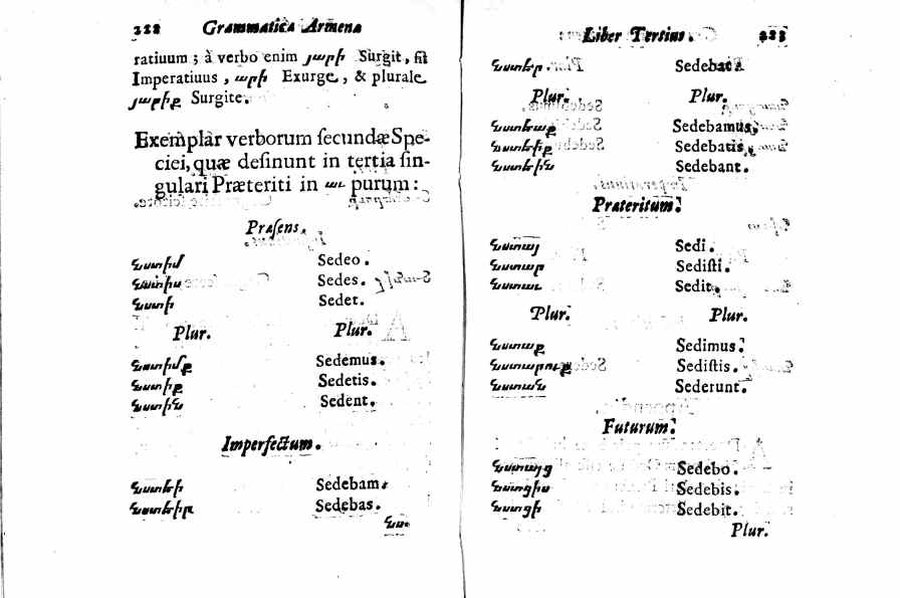 222 Grammatica Armena
ratiuum ; à verbo enim յարի Surgit, fit
Imperatiuus , արի Exurge, & plurale
յարիք Surgite.
Exemplar verborum ſecundæ Spe-
ciei, quæ deſinunt in tertia ſin-
gulari Præteriti in աւ purum :
Præſens.
նստիմ Sedeo .
նստիս Sedes .
նստի Sedet .
Plur. Plur.
նստիմք Sedemus.
նստիք Sedetis.
նստին Sedent.
Imperfectum .
նստեի Sedebam.
նստեիր Sedebas.
նս-
Liber Tertius. 223
նստէր . Sedebat.
Plur. Plur.
նստեաք Sedebamus,
նստեիք Sedebatis,
նստեին Sedebant.
Præteritum.
նստայ Sedi.
նստար Sediſti.
նստաւ Sedit.
Plur. Plur.
նստաք Sedimus.
նստարուք Sediſtis.
նստան Sederunt.
Futurum.
նստայց Sedebo.
նստցիս Sedebis.
նստցի Sedebit.
Plur.